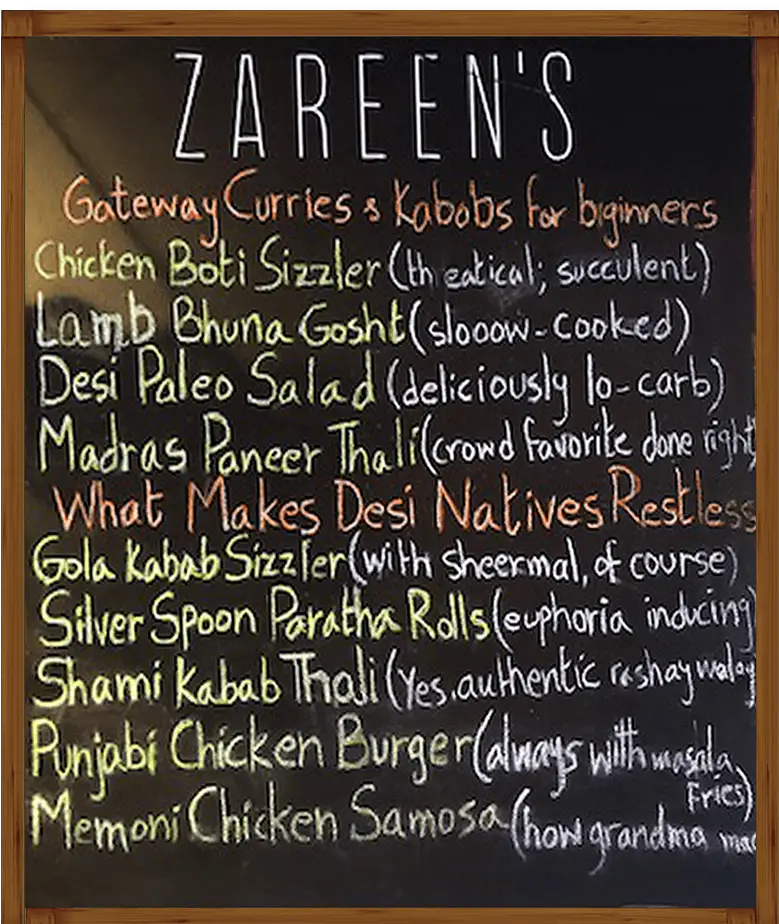 ZAREEN'S
Gateway Curries & Kabobs for biginners
Chicken Boti Sizzler (theatical; succulent)
Lamb Bhuna Gosht (slooow-cooked)
Desi Paleo Salad (deliciously lo-carb)
Madras Paneer Thali (crowd favorite done right)
What Makes Desi Natives Restless
Gola Kabab Sizzler (with sheermal, of course)
Silver Spoon Paratha Rolls (euphoria inducing)
Shami Kabab Thali (Yes, authentic reshay walay
Punjabi Chicken Burger (always with masala
Fries)
Memoni Chicken Samosa (how grandma